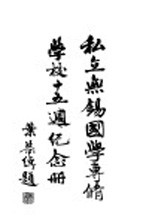 私立無錫國學專脩
學校十五週紀念冊
葉恭綽題